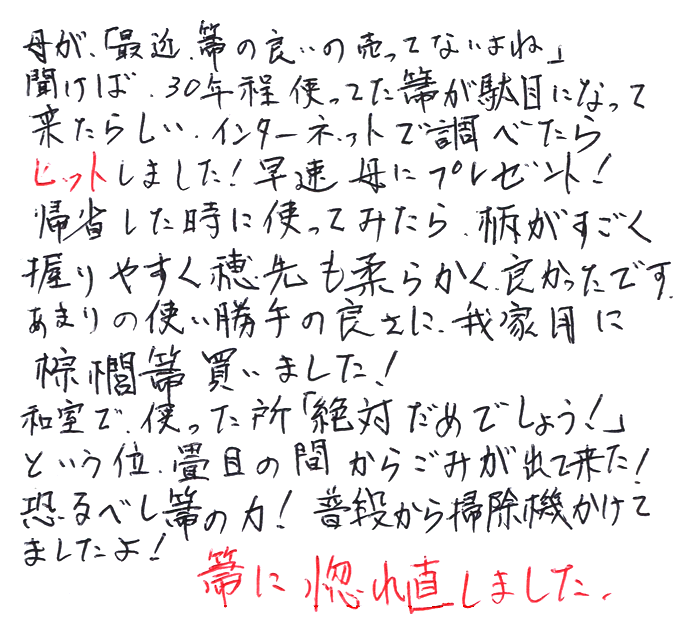 母が、「最近、箒の良いの売ってないよね」
聞けば、30年程使ってた箒が駄目になって
来たらしい、インターネットで調べたら
ヒットしました!早速母にプレゼント!
帰省した時に使ってみたら、柄がすごく
握りやすく穂先も柔らかく、良かったです。
あまりの使い勝手の良さに、我家用に
棕櫚箒買いました!
和室で、使った所「絶対だめでしょう!」
という位、畳目の間からごみが出て来た!
恐るべし箒の力!普段から掃除機かけて
ましたよ!
箒に惚れ直しました、